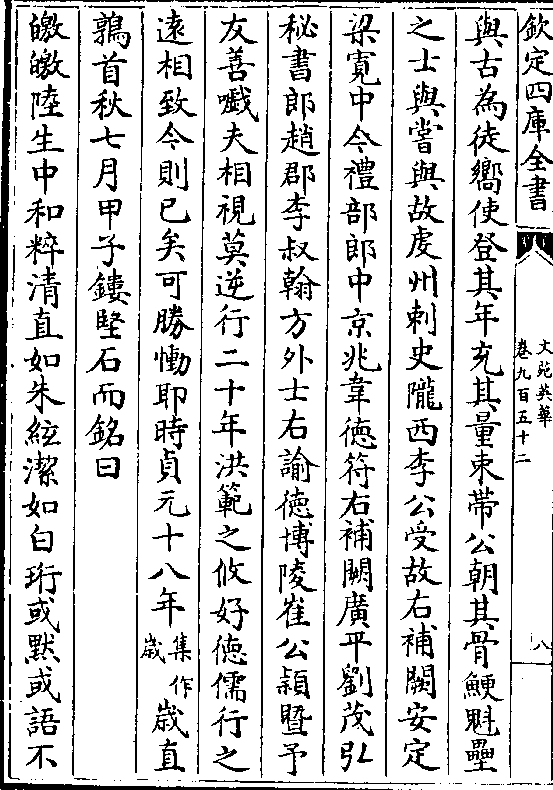 欽定四庫全書
文苑英華
卷九百五十二
八
與古為徒嚮使登其年充其量束帶公朝其骨鯁魁壘
之士與嘗與故虔州刺史隴西李公受故右補闕安定
梁寛中今禮部郎中京兆韋徳符右補闕廣平劉茂弘
秘書郎趙郡李叔翰方外士右諭徳博陵崔公頴暨予
友善嚱夫相視莫逆行二十年洪範之攸好徳儒行之
遠相致今則已矣可勝慟耶時貞元十八年集作歳歳直
鶉首秋七月甲子鏤堅石而銘曰
皦皦陸生中和粹清直如朱絃潔如白珩或黙或語不